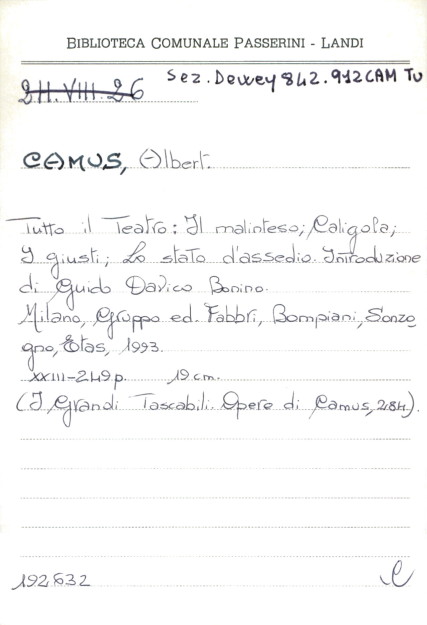 BIBLIOTECA COMUNALE PASSERINI - LANDI
2H.VIII.26 Sez. Dewey 842.912 CAM Tu
CAMUS, Albert.
Tutto il Teatro: Il malinteso; Caligola;
I giusti; Lo stato d'assedio. Introduzione
di Guido Davico Bonino.
Milano, Gruppo ed. Fabbri, Bompiani, Sonzo
gno, Etas, 1993.
XXIII-249 p. 19 cm.
(I Grandi Tascabili. Opere di Camus, 284).
192632